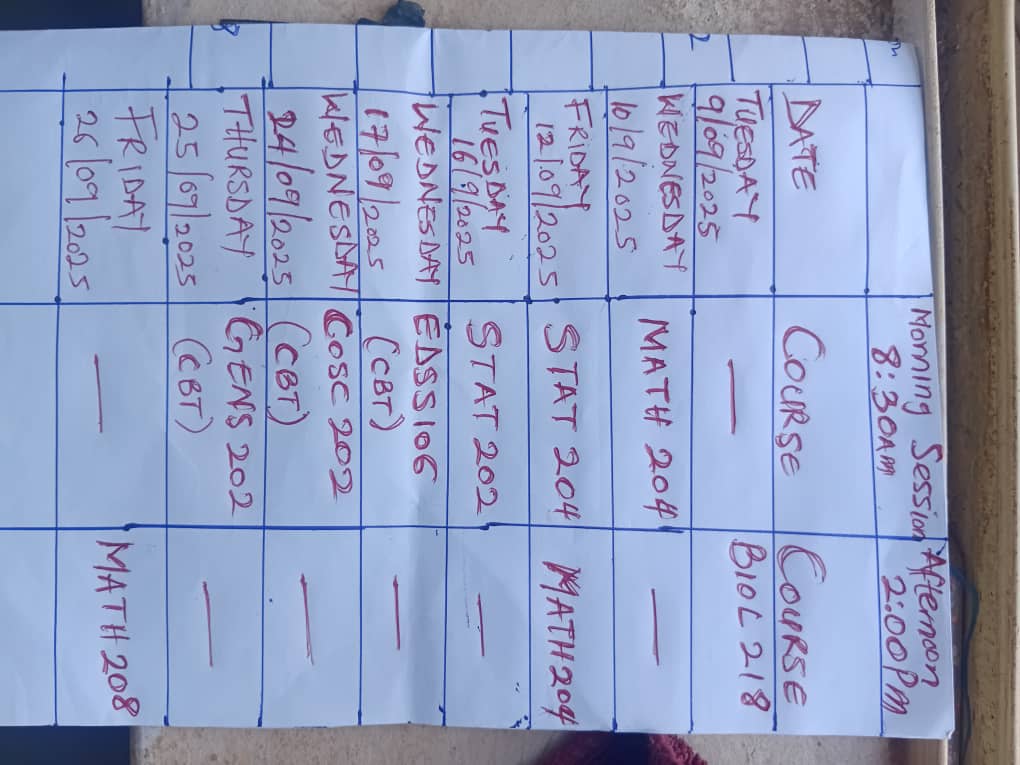 Morning Session Afternoon
8:30AM 2:00PM
DATE COURSE COURSE
TUESDAY
9/09/2025 — BIOL 218
WEDNESDAY
10/9/2025 MATH 204 —
FRIDAY
12/09/2025 STAT 204 MATH 204
TUESDAY
16/9/2025 STAT 202 —
WEDNESDAY EDSS106
17/09/2025 (CBT) —
WEDNESDAY COSC 202
24/09/2025 (CBT) —
THURSDAY GENS 202
25/09/2025 (CBT) —
FRIDAY
26/09/2025 — MATH 208